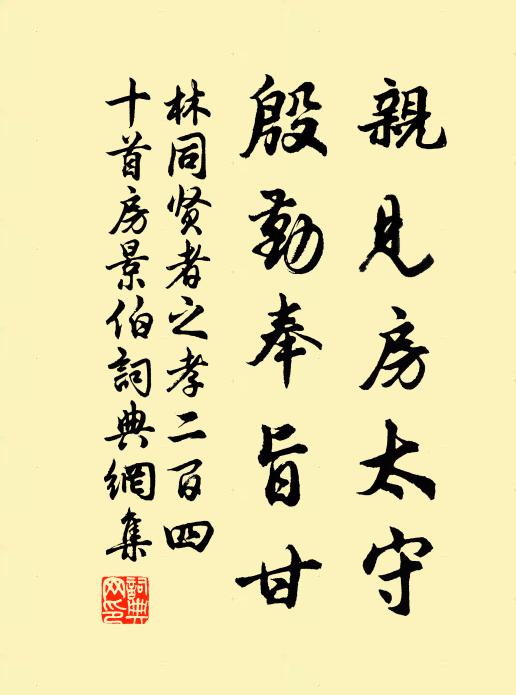 親見房太守
殷勤奉旨甘
林同贤者之孝二百四
十首房景伯詞典網集
詞典网印